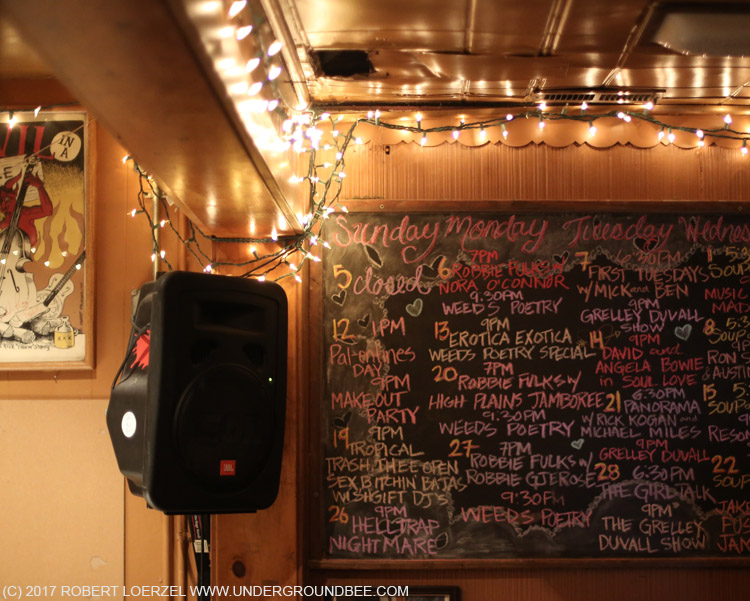 IN A
Sunday Monday Tuesday
5
closed
12 1PM
Pal-entines
DAY
9PM
MAKE OUT
PARTY
19 9PM
TROPICAL
TRASH, THEE OPEN
SEX, BITCHIN BAJAS
W/SHGIFT DJ'S
26 9PM
HELLTRAP
NIGHTMARE
7PM
6 ROBBIE FULKS W/
NORA O'CONNOR
9:30PM
WEEDS POETRY
9PM
13 EROTICA EXOTICA
WEEDS POETRY SPECIAL
7PM
20 ROBBIE FULKS W/
HIGH PLAINS JAMBOREE
9:30PM
WEEDS POETRY
27 7PM
ROBBIE FULKS W/
ROBBIE GJERSOE
9:30PM
WEEDS POETRY
7 6:30PM
FIRST TUESDAYS
W/ MICK and BEN
9PM
GRELLEY DUVALL
SHOW
14 9PM
DAVID and
ANGELA BOWIE
in SOUL LOVE
21 6:30PM
PANORAMA
W/ RICK KOGAN and
MICHAEL MILES
9PM
GRELLEY DUVALL
28 6:30PM
THE GIRL TALK
9PM
THE GRELLEY
DUVALL SHOW
1
8
15
22
JBL
(C) 2017 ROBERT LOERZEL WWW.UNDERGROUNDBEE.COM